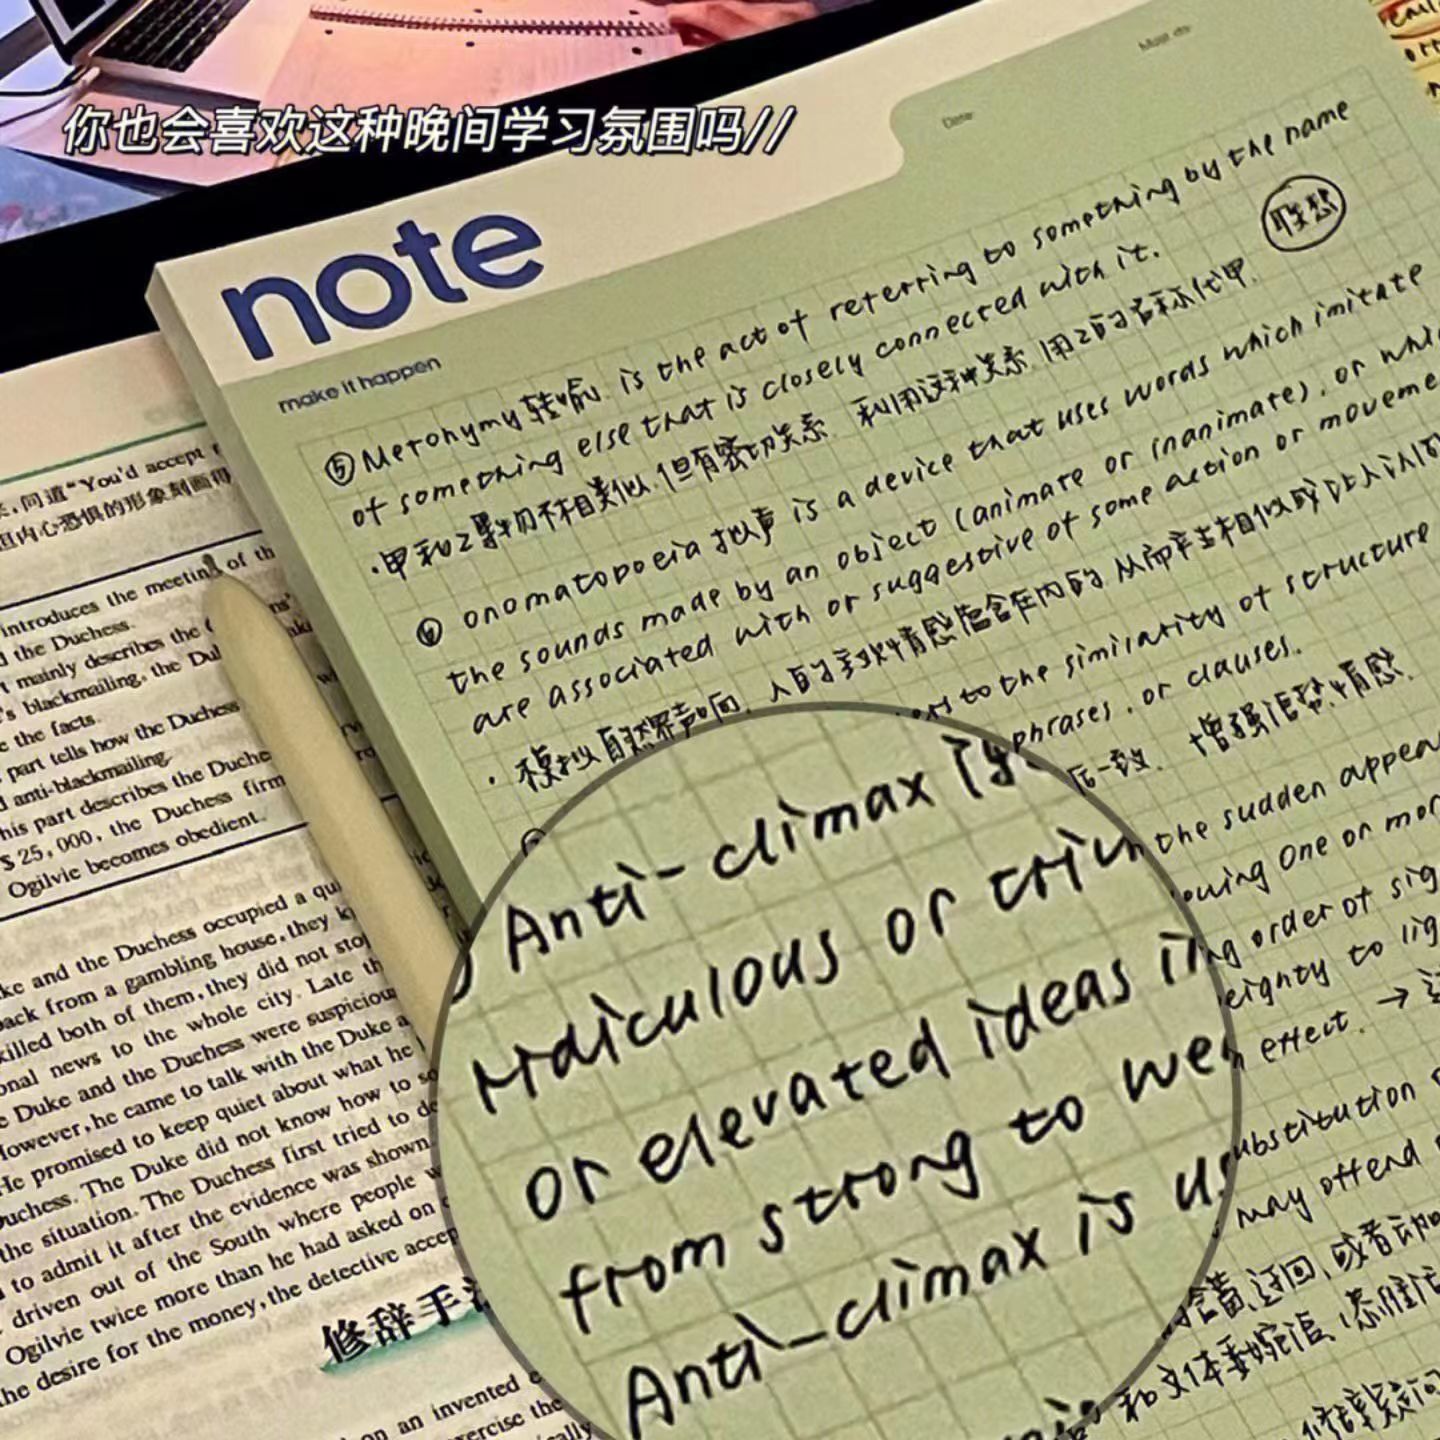 你也会喜欢这种晚间学习氛围吗//
note
make it happen
Date
⑤ Metonymy 转喻 is the act of referring to something by the name
of something else that is closely connected with it.
联想
·甲和乙事物不相类似.但有密切关系 利用这种关系 用乙的名称代甲.
⑥ onomatopoeia 拟声 is a device that uses words which imitate
the sounds made by an object (animate or inanimate), or whi
are associated with or suggestive of some action or moveme
· 模拟自然界声响,
to the similarity of structure
phrases, or clauses.
增强语势情感.
the sudden appea
ouing one or mor
ng order of sig
eignty to lig
effect. →
ubstitution
may offend
迂回,或者
Anti-climax
ridiculous or triv
or elevated ideas i
from strong to we
Anti-climax is us
问道“You'd accept
内心恐惧的形象刻画得
introduces the meeting of th
d the Duchess.
mainly describes the
's blackmailing, the Du
e the facts.
part tells how the Duchess
d anti-blackmailing.
his part describes the Duche
$ 25,000, the Duchess firm
Ogilvie becomes obedient.
ke and the Duchess occupied a qu
back from a gambling house, they k
killed both of them, they did not stop
onal news to the whole city. Late th
e Duke and the Duchess were suspiciou
However, he came to talk with the Duke a
He promised to keep quiet about what he
Duchess. The Duke did not know how to so
the situation. The Duchess first tried to de
to admit it after the evidence was shown.
driven out of the South where people w
Ogilvie twice more than he had asked on
he desire for the money, the detective accep
修辞手法
on an invented
exercise the